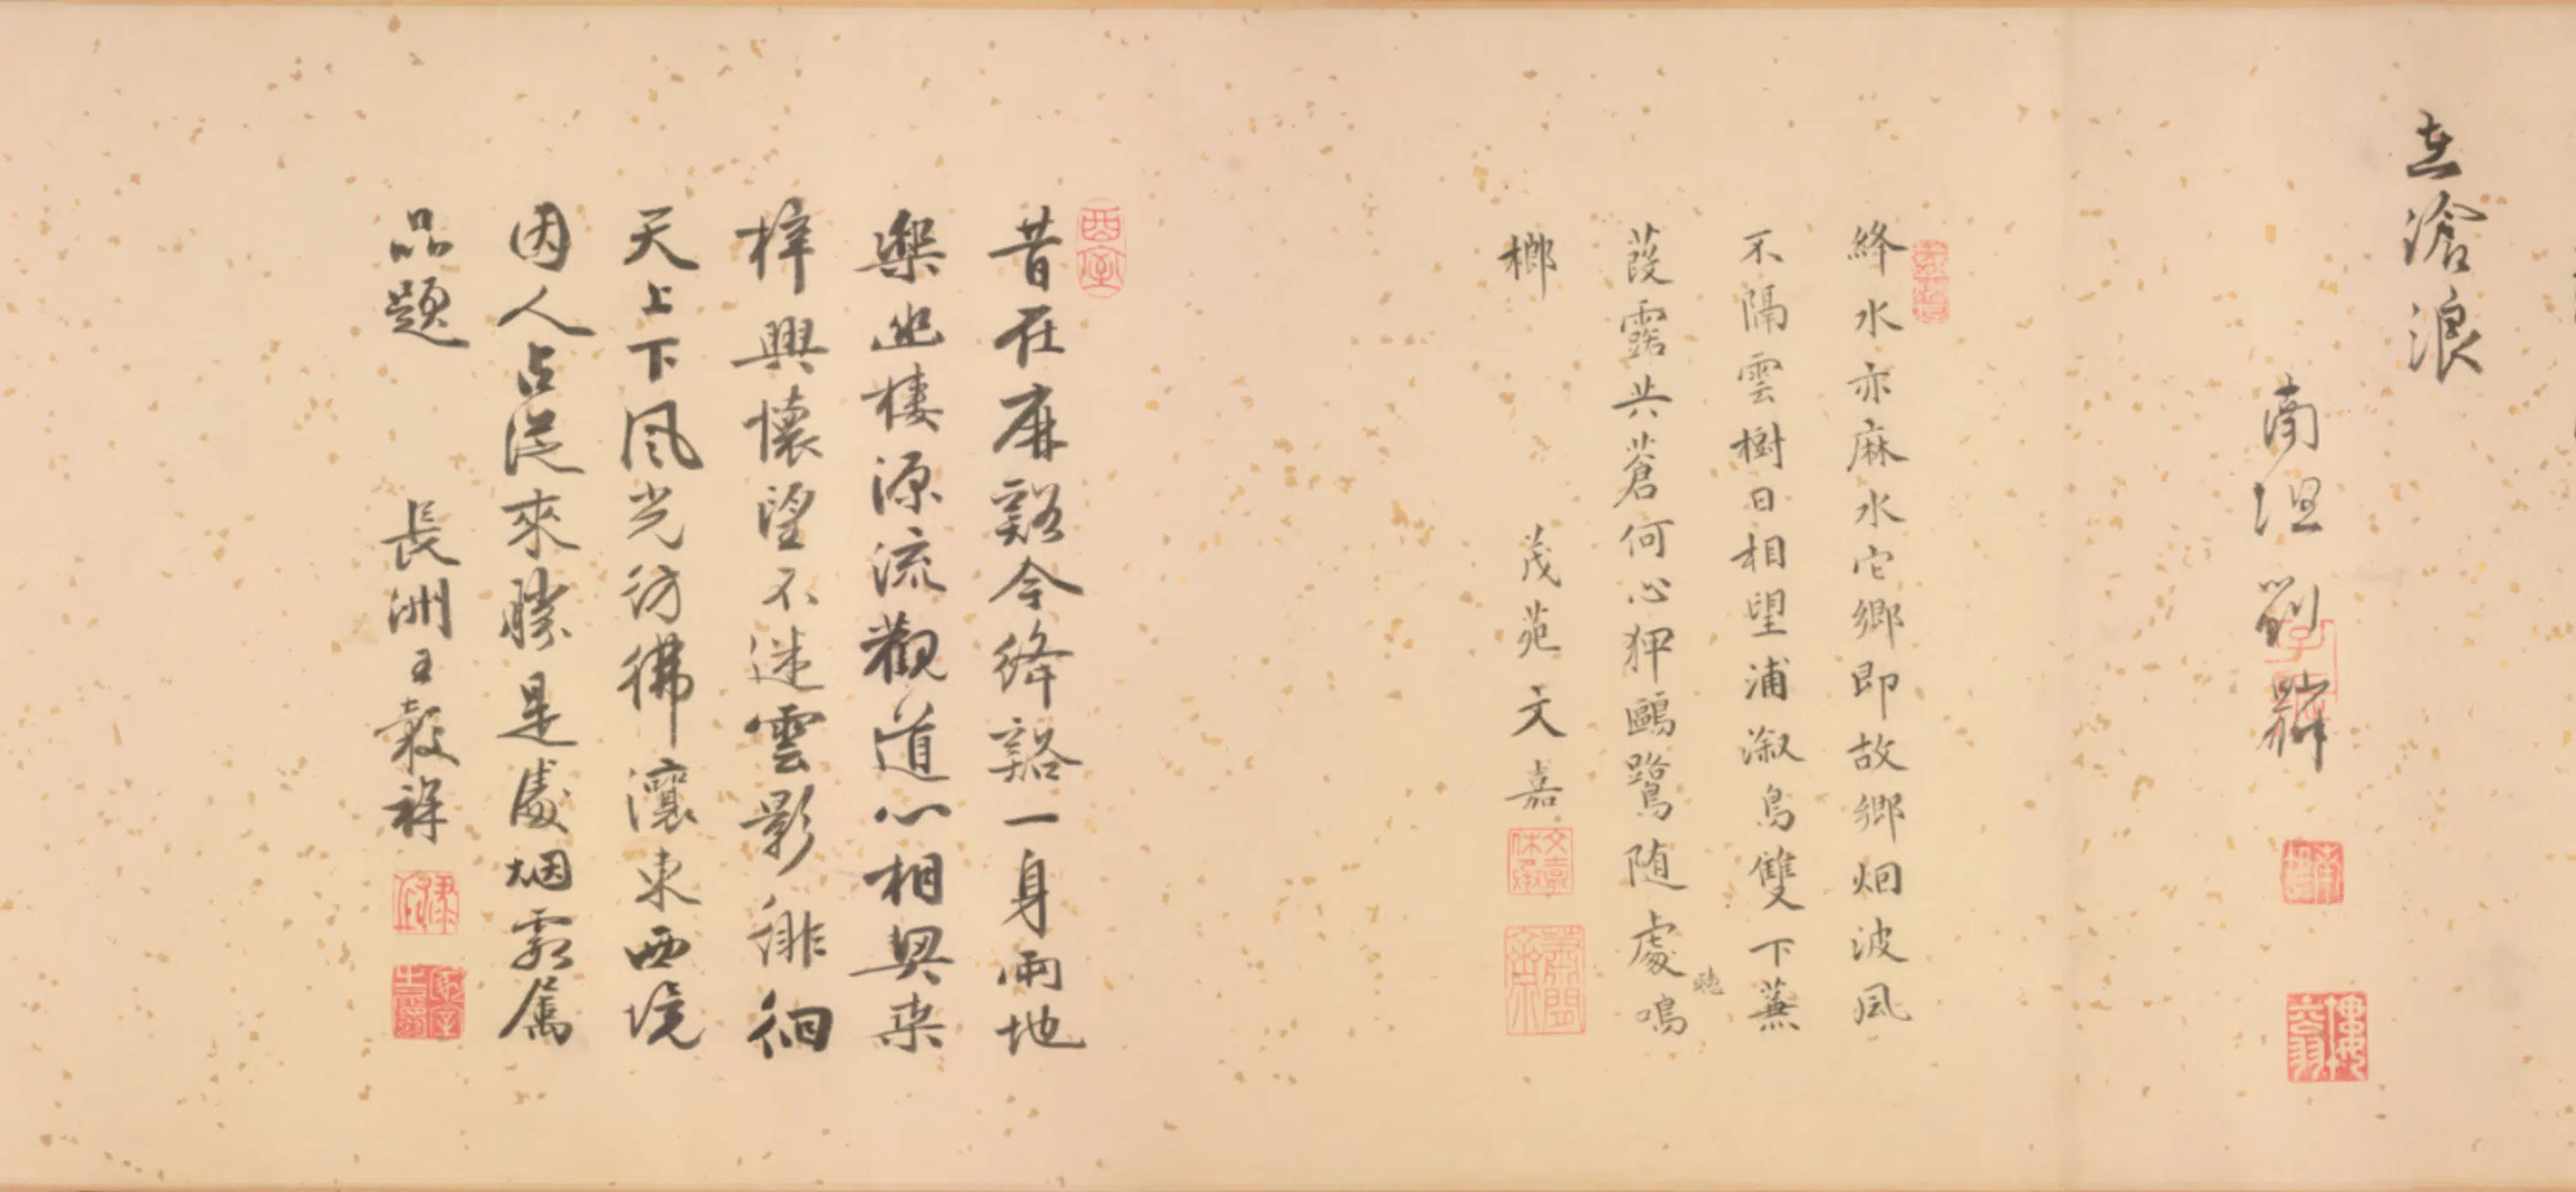 在滄浪
南沮劉麟
絳水亦麻水它鄉即故鄉烟波風
不隔雲樹日相望浦溆鳥雙下蕪
葭露共蒼何心狎鷗鷺随處鳴
聽
榔
茂苑文嘉
昔在麻谿今絳谿一身兩地
樂幽棲源流觀道心相契桑
梓興懷望不迷雲影徘徊
天上下風光彷彿瀼東西境
因人占從來勝是處烟霞屬
品題
長洲王穀祥